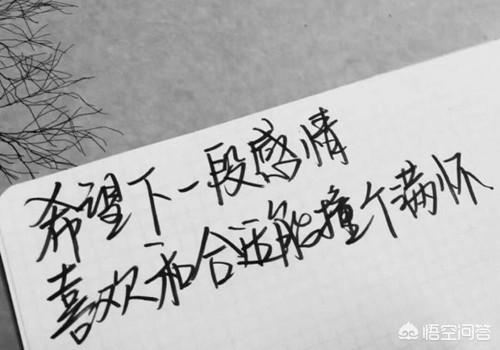 希望下一段感情
喜欢和合适能撞个满怀
悟空问答